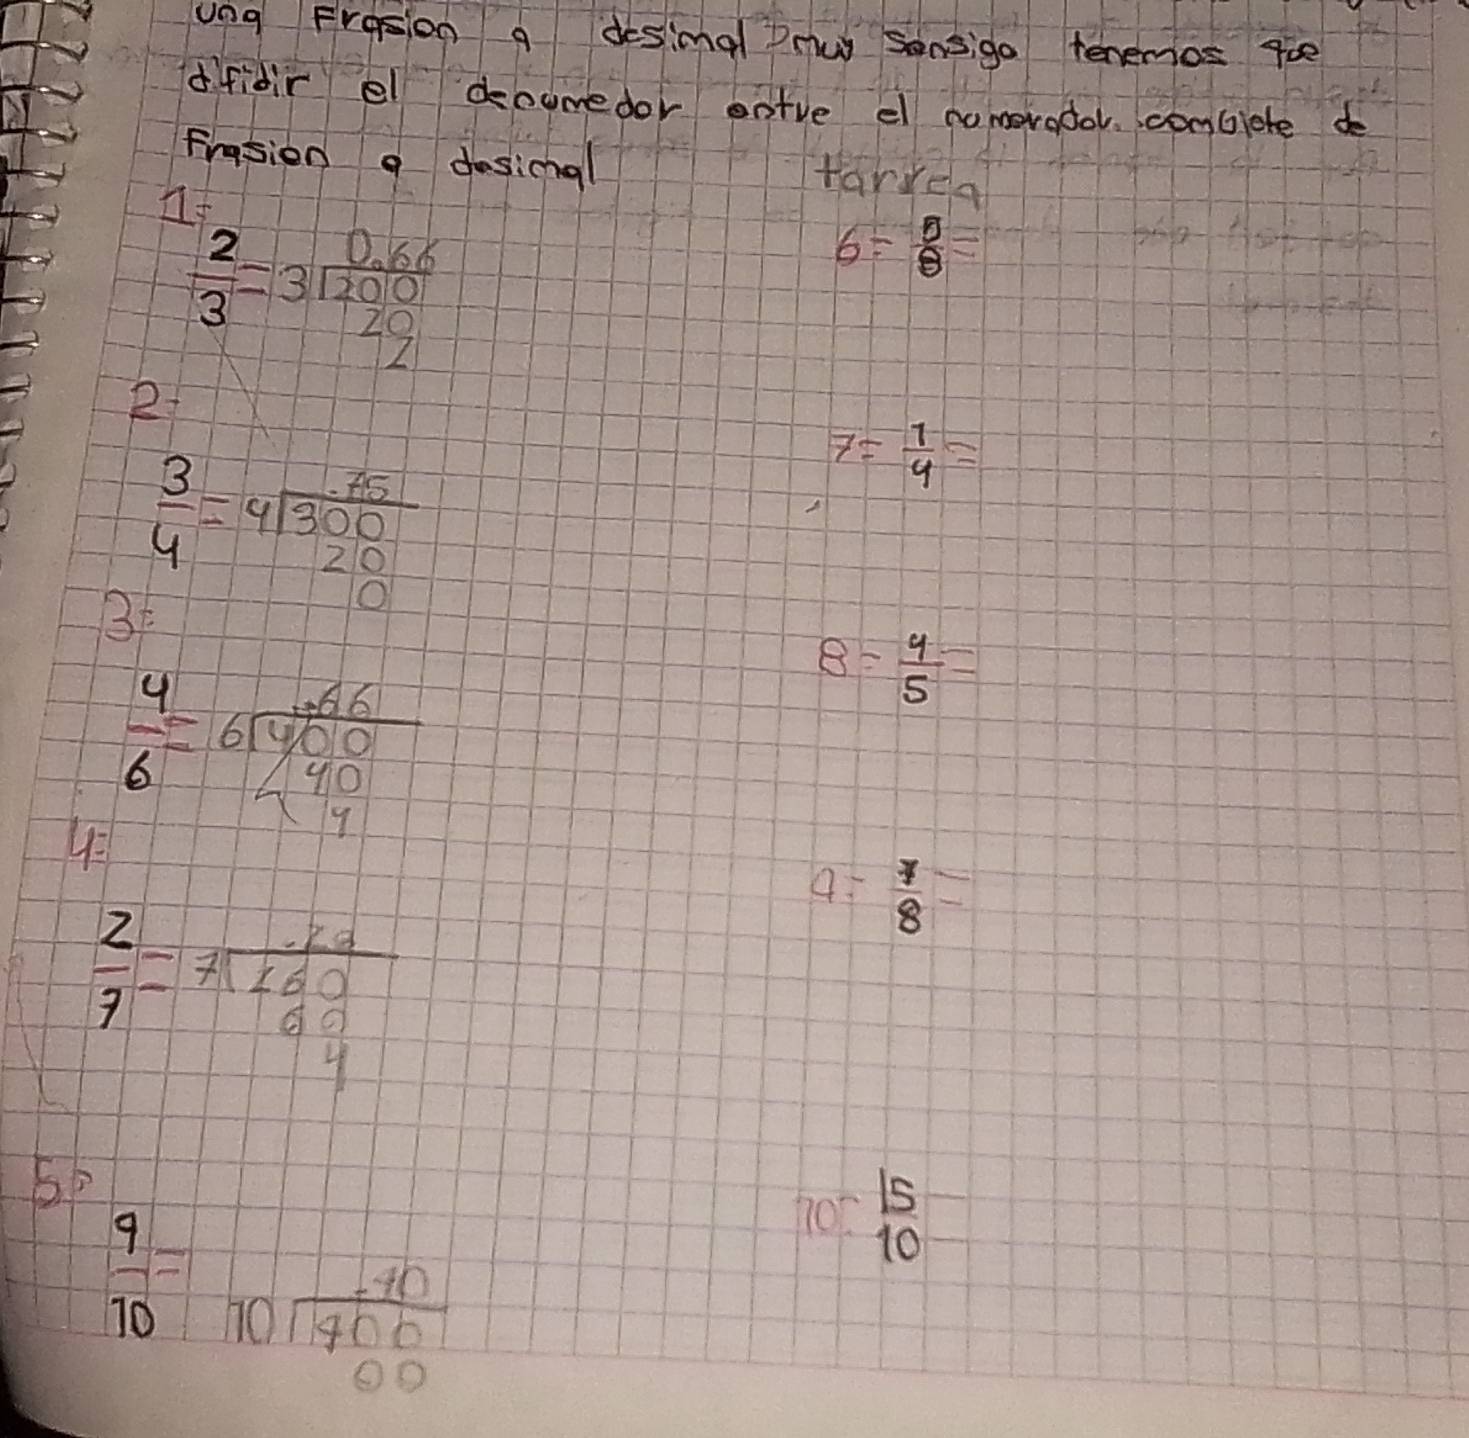 una Frasion a desimal? muy sensigo tenemos que
difidir el denumedor entre el numerador. complete de
Frasion a desimal
tarrea
1=
2/3 = 3 200 0.66
20
2
2=
3/4 = 4 300 .75
20
0
3=
4/6 = 6 400 .66
40
4
4=
2/7 = 7
60
4
5=
9/10 =
10 900 .90
00
6=
8 =
7= 1/4 =
8= 4/5 =
9= 7/8 =
10= 15/10